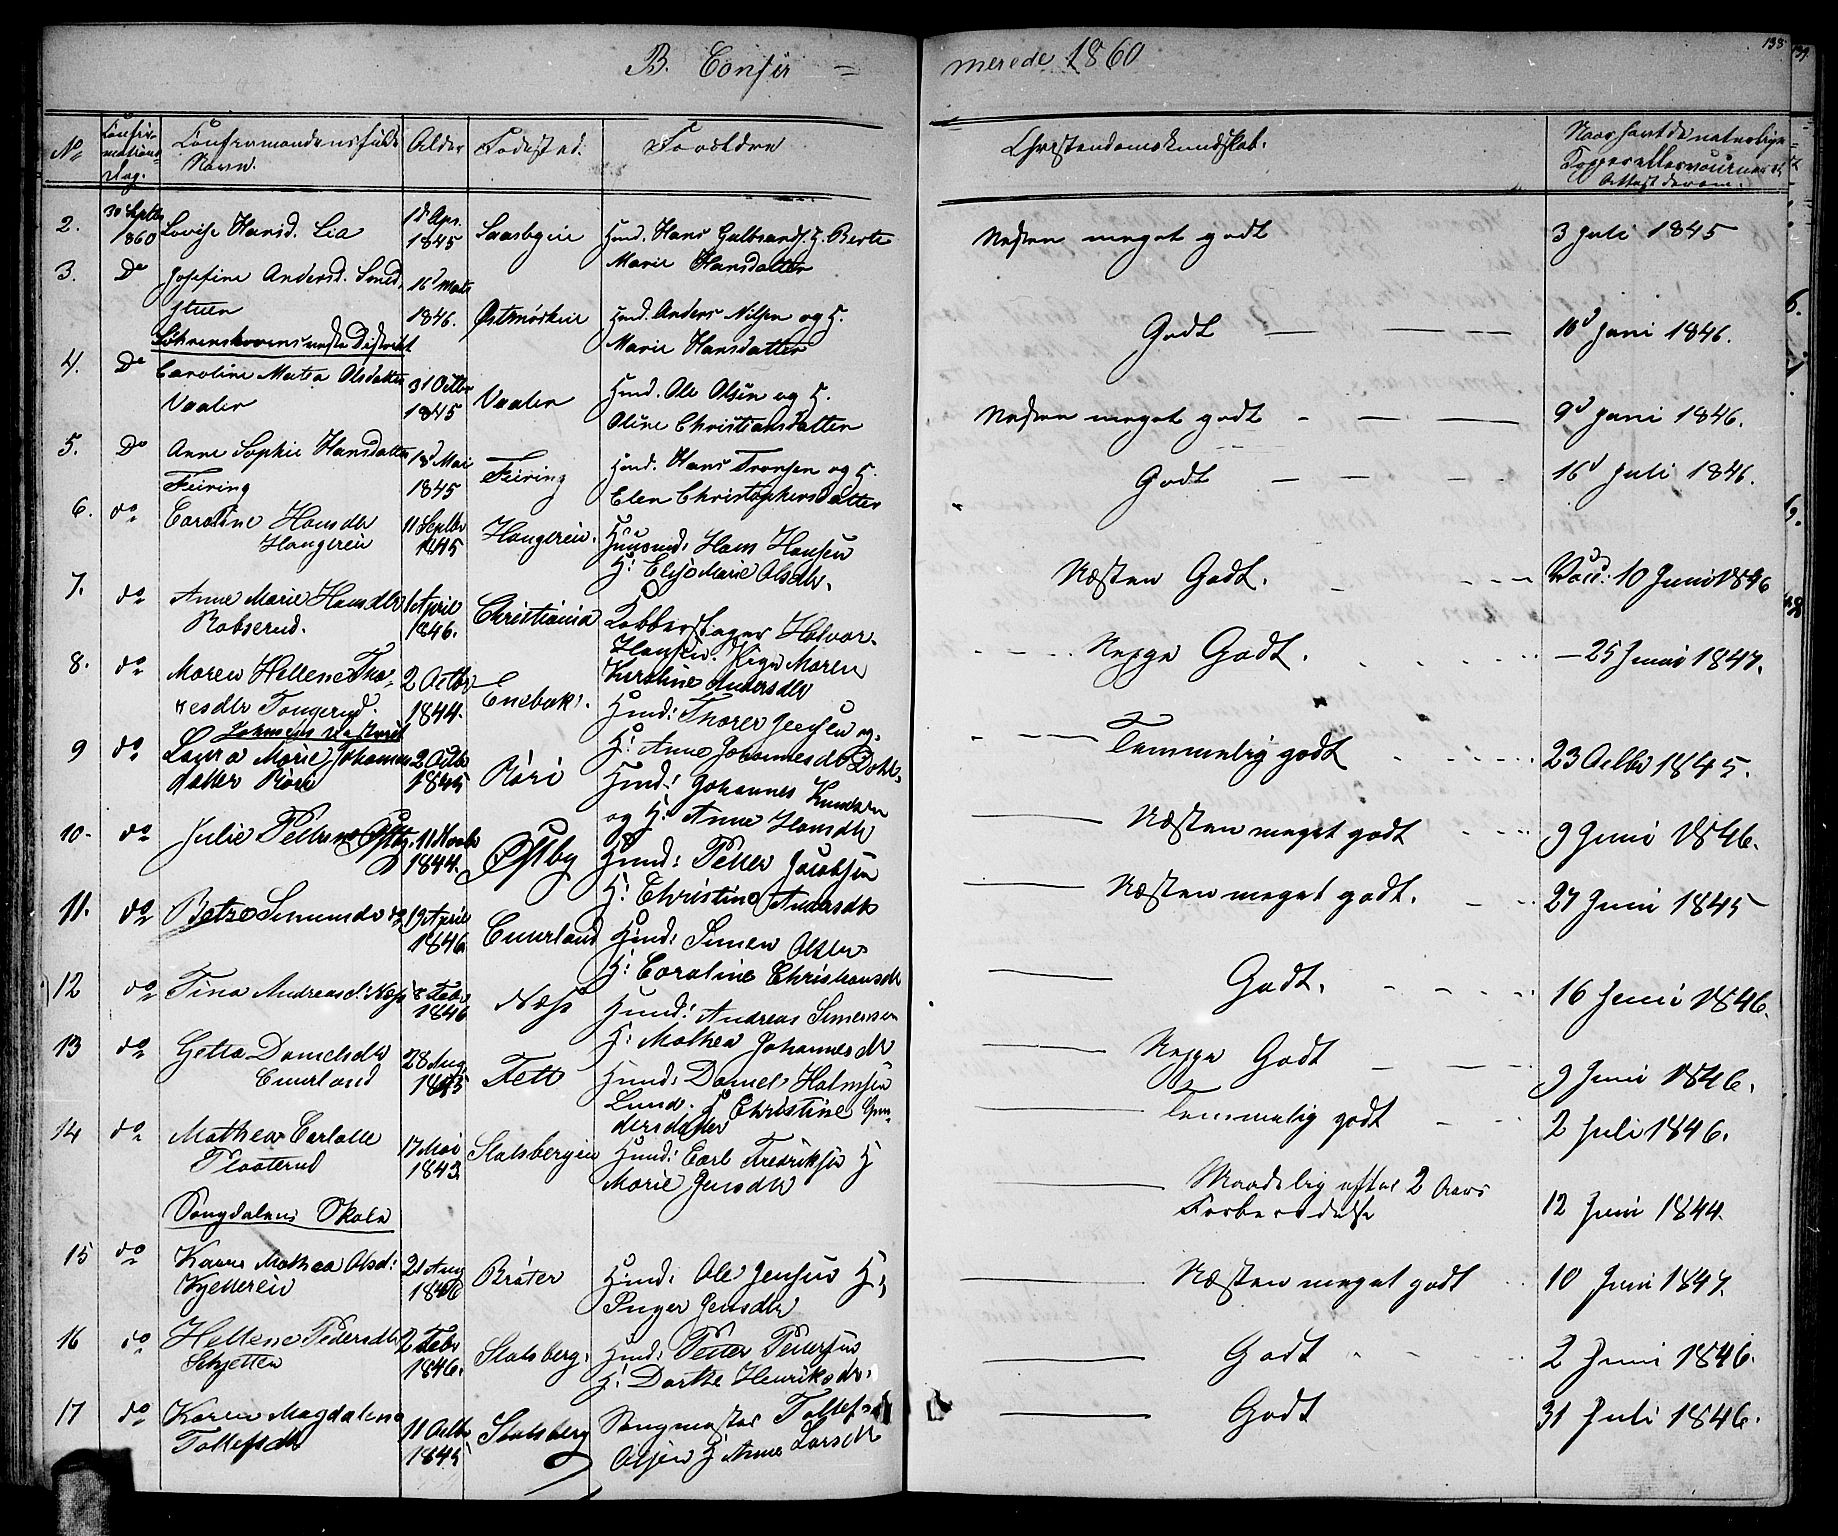 B. Confir = merede 1860
138
No
Confir-
mations
Dag.
Confirmandens fulde
Navn.
Alder
Fødested.
Forældre
Christendomskundskab.
2. 30 Septbr 1860 Lovise Hansd. Lia 1ste Apr. 1845 Saasbyeie Hmd. Hans Gulbrands. H. Berte
Marie Hansdatter
Næsten meget godt 3 Juli 1845
3. Do Josefine Andersd. Smed-
stuen 16d Marts 1846. Østmørkeie Hmd. Anders Nilsen og H.
Marie Hansdatter
Godt 10d Juni 1846.
4. Do Caroline Matea Olsdatter
Vaaler 31 Octbr 1845 Vaaler Hmd. Ole Olsen og H.
Oline Christiansdatter
Næsten meget godt 9d Juni 1846.
5. Do Anne Sophie Hansdatter
Feiring 18d Mai 1845 Feiring Hmd. Hans Tronsen og H.
Elen Christophersdatter
Godt 16d Juli 1846.
6. do Caroline Hansdtr
Haugereie 11 Septbr 1845 Haugereie. Huusmd: Hans Hansen
H: Elise Marie Olsdtr.
Næsten Godt. Vacc: 10 Juni 1846
7. do Anne Marie Hansdtr
Robserud. 1 April 1846. Christiania Kobberslager Halvor
Hansen. Pige Maren
Kirstine Andersdtr
Neppe Godt. 25 Juni 1847.
8. do Maren Hellene Tho-
resdtr Tangerud. 2 Octbr 1844. Enebak. Hmd: Thorer Jensen og
H: Anne Johannesdtr
Temmelig godt 23 Octbr 1845.
9 do Laura Marie Johannes
datter Røri 2 Octbr 1845 Røri Hmd: Johannes Knudsen
og H: Anne Hansdtr
Næsten meget godt 9 Juni 1846.
10. do Julie Petterse Østby. 11 Novbr 1844. Østby Hmd: Petter Jacobsen
H: Christine Andersdtr
Næsten meget godt. 27 Juni 1845
11. do Betze Simensdtr 19 April 1846 Emerland Hmd: Simen Olsen
H: Caroline Christiansdtr
Godt. 16 Juni 1846.
12 do Tina Andreasd: Næss 8 Febr 1846 Næss Hmd: Andreas Simensen
H: Mathea Johannesdtr
Neppe Godt 9 Juni 1846.
13 do Getta Danielsdtr
Emerland 28 Aug. 1845 Fett Hmd: Daniel Halmsen
Lund. H: Christine Gun-
dersdatter
Temmelig godt 2 Juli 1846.
14 do Mathea Carlotte
Plaaterud 17 Mai 1843. Stalsbergeie Hmd: Carl Fredriksen H
Marie Jensdtr
Maadelig efter 2 Aars
Forberedelse 12 Juni 1844.
Sangdalens Skole
15 do Karen Mathea Olsd:
Kjettereie 21 Aug 1846 Bråter Hmd: Ole Jensen H:
Inger Jensdtr
Næsten meget godt 10 Juni 1847.
16 do Hellene Pedersdtr
Schjetten 2 Febr 1846. Stalsberg. Hmd: Petter Pettersen
H: Dorthe Henriksdtr.
Godt 2 Juni 1846.
17 do Karen Magdalena
Tollefsdtr 11 Octbr 1845 Stalsberg Tollef
Olsen H Anne Larsdtr
Godt 31 Juli 1846.